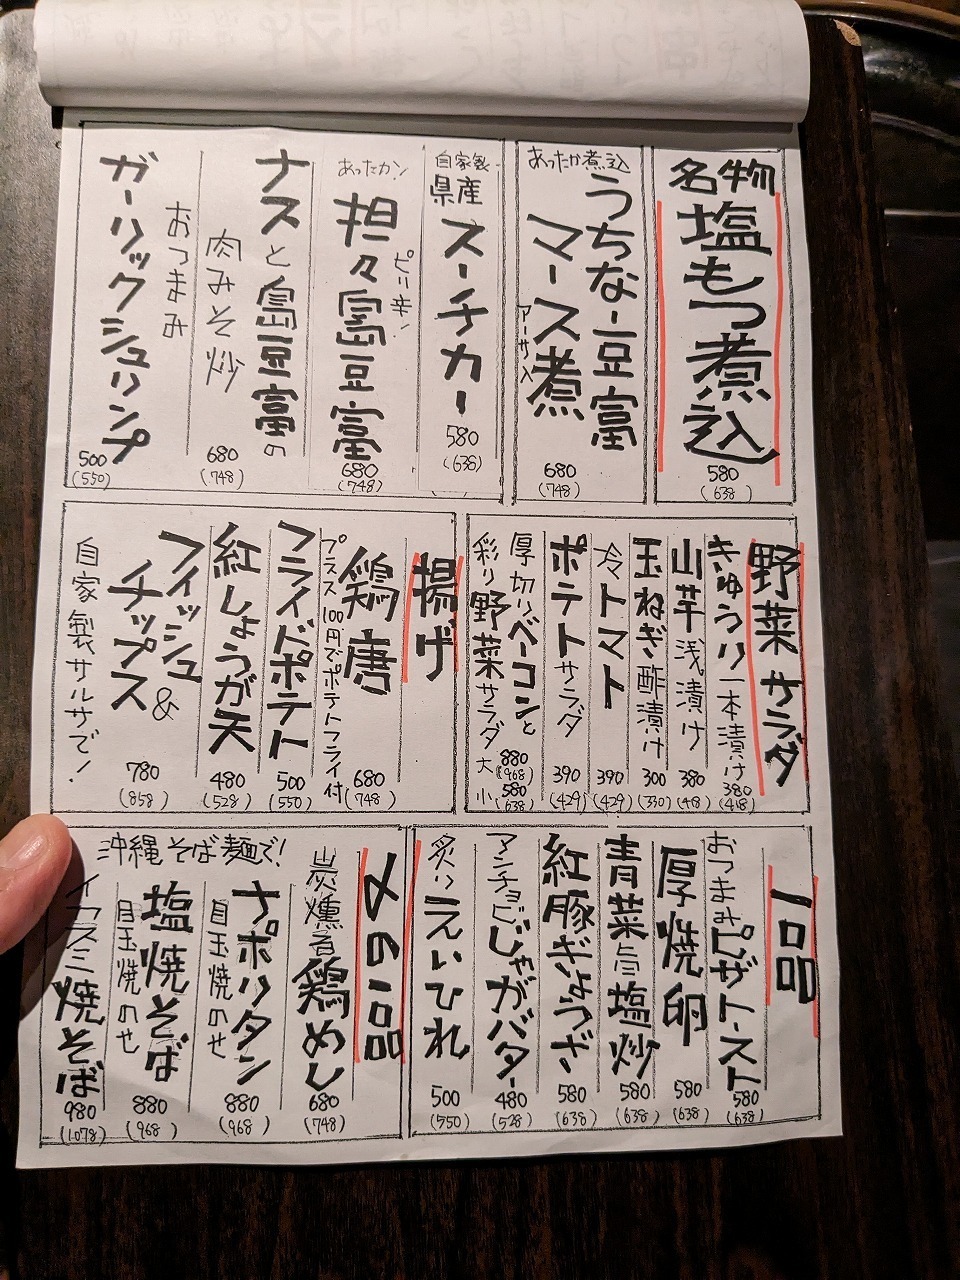 名物
塩もつ煮込
580
(638)
あったか煮込
うちなー豆富
マース煮
アーサ入
680
(748)
自家製
県産
スーチカー
580
(638)
あったカン!
担々島豆富
ピリ辛!
680
(748)
ナスと島豆富の
肉みそ炒
680
(748)
おつまみ
ガーリックシュリンプ
500
(550)
野菜 サラダ
きゅうり一本漬け
380
(418)
山芋浅漬け
380
(418)
玉ねぎ酢漬け
300
(330)
冷トマト
390
(429)
ポテトサラダ
390
(429)
厚切りベーコンと
彩り野菜サラダ
大
880
(968)
小
580
(638)
揚げ
鶏唐
プラス100円でポテトフライ付
680
(748)
フライドポテト
500
(550)
紅しょうが天
480
(528)
フィッシュ&
チップス
780
(858)
自家製サルサで!
一品
おつまみピザトースト
580
(638)
厚焼卵
580
(638)
青菜旨塩炒
580
(638)
紅豚ぎょうざ
580
(638)
アンチョビじゃがバター
480
(528)
炙りえいひれ
500
(550)
〆の一品
炭燻る鶏めし
680
(748)
沖縄そば麺で!
ナポリタン
目玉焼のせ
880
(968)
塩焼そば
目玉焼のせ
880
(968)
イカスミ焼そば
980
(1078)